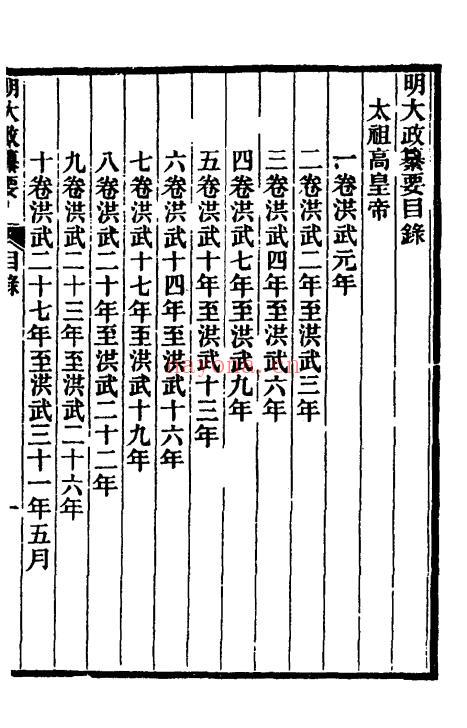 明大政纂要目錄
太祖高皇帝
一卷洪武元年
二卷洪武二年至洪武三年
三卷洪武四年至洪武六年
四卷洪武七年至洪武九年
五卷洪武十年至洪武十三年
六卷洪武十四年至洪武十六年
七卷洪武十七年至洪武十九年
八卷洪武二十年至洪武二十二年
九卷洪武二十三年至洪武二十六年
十卷洪武二十七年至洪武三十一年五月
明大政纂要
目錄
一
nayona.cn